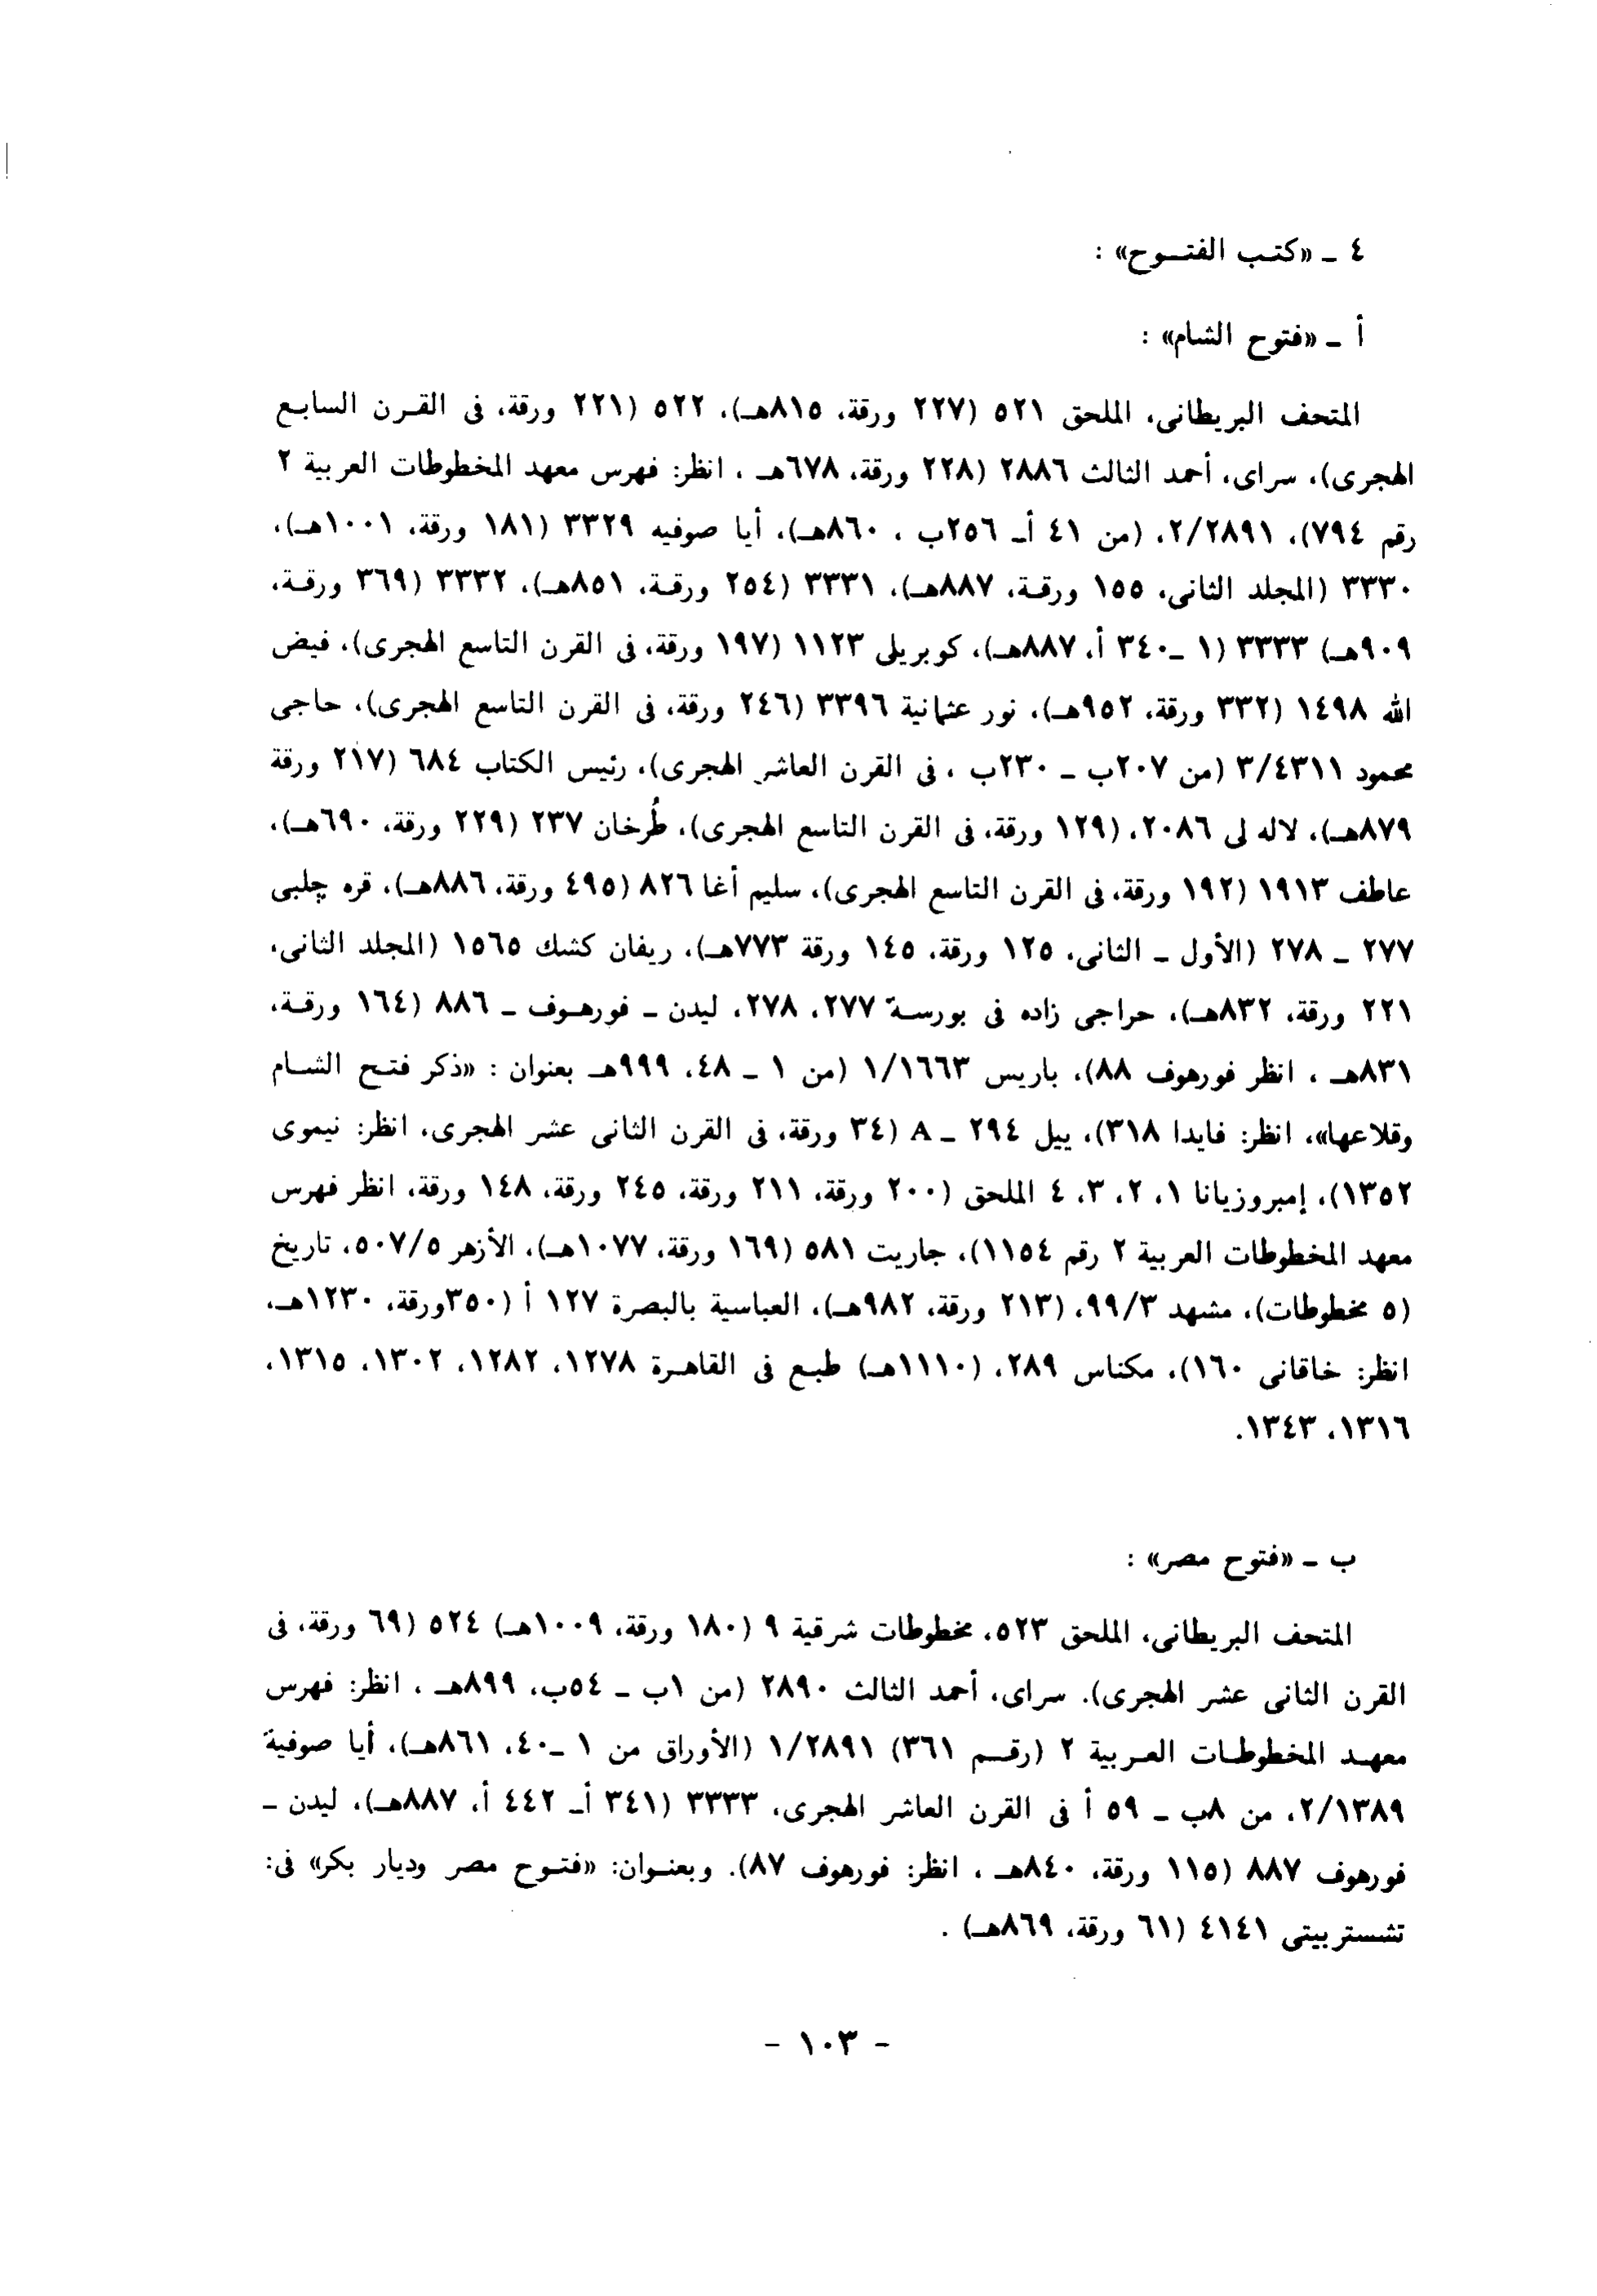 ٤ ـ «كتب الفتوح» :
أ ـ «فتوح الشام» :
المتحف البريطانى، الملحق ٥٢١ (٢٢٧ ورقة، ٨١٥هـ)، ٥٢٢ (٢٢١ ورقة، فى القرن السابع
الهجرى)، سراى، أحمد الثالث ٢٨٨٦ (٢٢٨ ورقة، ٦٧٨هـ ، انظر: فهرس معهد المخطوطات العربية ٢
رقم ٧٩٤)، ٢/٢٨٩١، (من ٤١ أ ـ ٢٥٦ب ، ٨٦٠هـ)، أيا صوفيه ٣٣٢٩ (١٨١ ورقة، ١٠٠١هـ)،
٣٣٣٠ (المجلد الثانى، ١٥٥ ورقة، ٨٨٧هـ)، ٣٣٣١ (٢٥٤ ورقة، ٨٥١هـ)، ٣٣٣٢ (٣٦٩ ورقة،
٩٠٩هـ) ٣٣٣٣ (١ ـ ٣٤٠ أ، ٨٨٧هـ)، كوبريلى ١١٢٣ (١٩٧ ورقة، فى القرن التاسع الهجرى)، فيض
الله ١٤٩٨ (٣٣٢ ورقة، ٩٥٢هـ)، نور عثمانية ٣٣٩٦ (٢٤٦ ورقة، فى القرن التاسع الهجرى)، حاجى
محمود ٣/٤٣١١ (من ٢٠٧ب ـ ٢٣٠ب ، فى القرن العاشر الهجرى)، رئيس الكتاب ٦٨٤ (٢١٧ ورقة
٨٧٩هـ)، لاله لى ٢٠٨٦، (١٢٩ ورقة، فى القرن التاسع الهجرى)، طُرخان ٢٣٧ (٢٢٩ ورقة، ٦٩٠هـ)،
عاطف ١٩١٣ (١٩٢ ورقة، فى القرن التاسع الهجرى)، سليم أغا ٨٢٦ (٤٩٥ ورقة، ٨٨٦هـ)، قره چلبى
٢٧٧ ـ ٢٧٨ (الأول ـ الثانى، ١٢٥ ورقة، ١٤٥ ورقة ٧٧٣هـ)، ريفان كشك ١٥٦٥ (المجلد الثانى،
٢٢١ ورقة، ٨٣٢هـ)، حراجى زاده فى بورسة ٢٧٧، ٢٧٨، ليدن ـ فورهوف ـ ٨٨٦ (١٦٤ ورقة،
٨٣١هـ ، انظر فورهوف ٨٨)، باريس ١/١٦٦٣ (من ١ ـ ٤٨، ٩٩٩هـ بعنوان : «ذكر فتح الشام
وقلاعها»، انظر: فايدا ٣١٨)، ييل ٢٩٤ ـ A (٣٤ ورقة، فى القرن الثانى عشر الهجرى، انظر: نيموى
١٣٥٢)، إمبروزيانا ١، ٢، ٣، ٤ الملحق (٢٠٠ ورقة، ٢١١ ورقة، ٢٤٥ ورقة، ١٤٨ ورقة، انظر فهرس
معهد المخطوطات العربية ٢ رقم ١١٥٤)، جاريت ٥٨١ (١٦٩ ورقة، ١٠٧٧هـ)، الأزهر ٥٠٧/٥، تاريخ
(٥ مخطوطات)، مشهد ٩٩/٣، (٢١٣ ورقة، ٩٨٢هـ)، العباسية بالبصرة ١٢٧ أ (٣٥٠ورقة، ١٢٣٠هـ،
انظر: خاقانى ١٦٠)، مكناس ٢٨٩، (١١١٠هـ) طبع فى القاهرة ١٢٧٨، ١٢٨٢، ١٣٠٢، ١٣١٥،
١٣١٦، ١٣٤٣.
ب ـ «فتوح مصر» :
المتحف البريطانى، الملحق ٥٢٣، مخطوطات شرقية ٩ (١٨٠ ورقة، ١٠٠٩هـ) ٥٢٤ (٦٩ ورقة، فى
القرن الثانى عشر الهجرى). سراى، أحمد الثالث ٢٨٩٠ (من ١ب ـ ٥٤ب، ٨٩٩هـ ، انظر: فهرس
معهد المخطوطات العربية ٢ (رقم ٣٦١) ١/٢٨٩١ (الأوراق من ١ ـ ٤٠، ٨٦١هـ)، أيا صوفية
٢/١٣٨٩، من ٨ب ـ ٥٩ أ فى القرن العاشر الهجرى، ٣٣٣٣ (٣٤١ أ ـ ٤٤٢ أ، ٨٨٧هـ)، ليدن ـ
فورهوف ٨٨٧ (١١٥ ورقة، ٨٤٠هـ ، انظر: فورهوف ٨٧). وبعنوان: «فتوح مصر وديار بكر» فى:
تشستربيتى ٤١٤١ (٦١ ورقة، ٨٦٩هـ) .
- ١٠٣ -